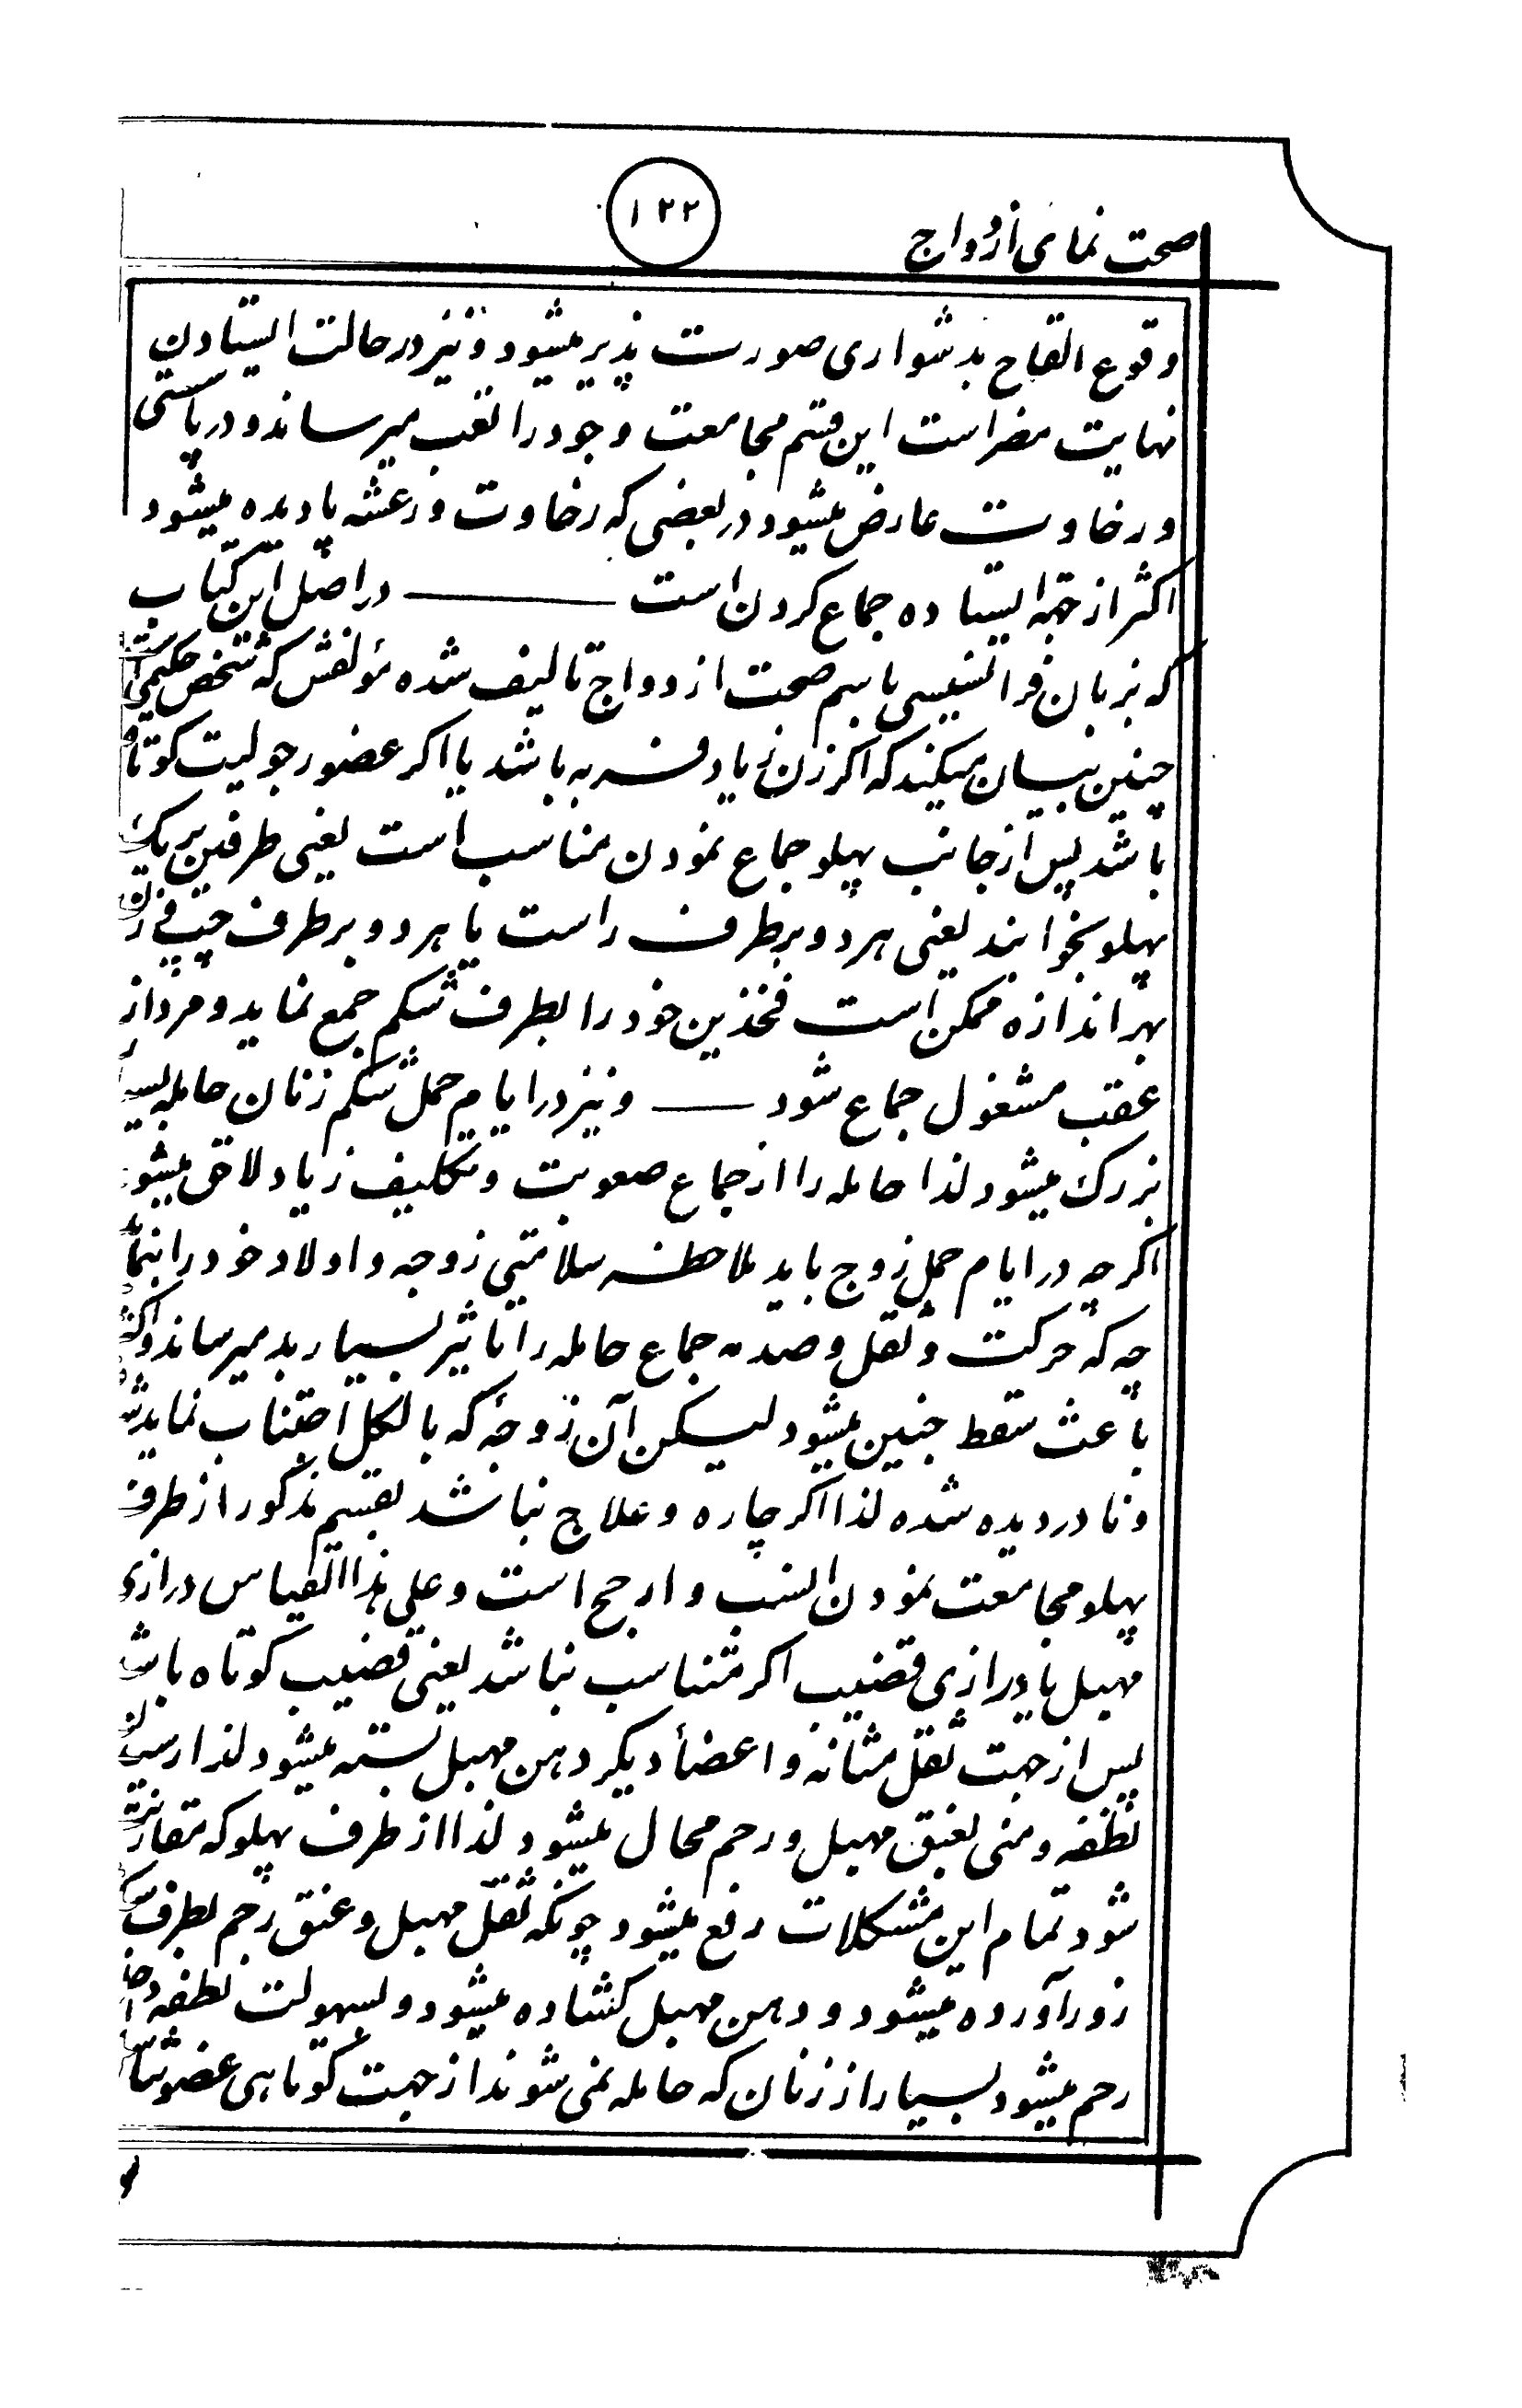 صحت نمای ازدواج
۱۲۲
وقوع القاح بدشواری صورت پذیر میشود و نیز در حالت ایستادن
نهایت مضر است این قسم مجامعت وجود را تعب میرساند و در پا سستی
و رخاوت عارض میشود در بعضی که رخاوت و رعشه پا دیده میشود
اکثر از جهة ایستاده جماع کردن است ــــــ در اصل این کتاب
که بزبان فرانسیسی باسم صحت ازدواج تالیف شده مؤلفش که شخص حکیمی
چنین بیان میکند که اکر زن زیاد فربه باشد یا اکر عضو رجولیت کوتاه
باشد پس از جانب پهلو جماع نمودن مناسب است یعنی طرفین بر یک
پهلو بخوابند یعنی هر دو بر طرف راست یا هر دو بر طرف چپ
بهر اندازه ممکن است فخذین خود را بطرف شکم جمع نماید و مرد از
عقب مشغول جماع شود ــــــ و نیز در ایام حمل شکم زنان حامله
بزرک میشود لذا حامله را از جماع صعوبت و تکلیف زیاد لاحق میشود
اکر چه در ایام حمل زوج باید ملاحظه سلامتی زوجه و اولاد خود را
چه که حرکت و ثقل و صدمه جماع حامله را تاثیر بسیار بد میرساند و
باعث سقط جنین میشود لیکن آن زوجۀ که بالکل اجتناب نماید
و نادر دیده شده لذا اکر چاره و علاج نباشد بقسم مذکور از طرف
پهلو مجامعت نمودن انسب و ارجح است و علی هذا القیاس درازی
مهبل با درازی قضیب اکر متناسب نباشد یعنی قضیب کوتاه
پس از جهت ثقل مثانه و اعضأ دیکر دهن مهبل بسته میشود لذا
نطفه و منی بعنق مهبل و رحم محال میشود لذا از طرف پهلو که
شود تمام این مشکلات رفع میشود چونکه ثقل مهبل و عنق رحم بطرف
زور آورده میشود و دهن مهبل کشاده میشود و بسهولت نطفه
رحم میشود بسیار از زنان که حامله نمی شوند از جهت کوتاهی عضو